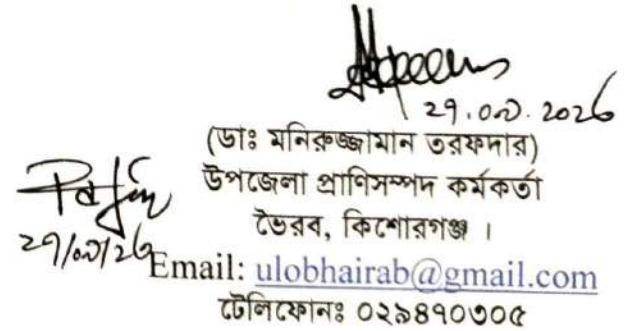 ২৭.০৭.২০২৬
(ডাঃ মনিরুজ্জামান তরফদার)
উপজেলা প্রাণিসম্পদ কর্মকর্তা
ভৈরব, কিশোরগঞ্জ ।
Email: ulobhairab@gmail.com
টেলিফোনঃ ০২৯৪৭০৩০৫